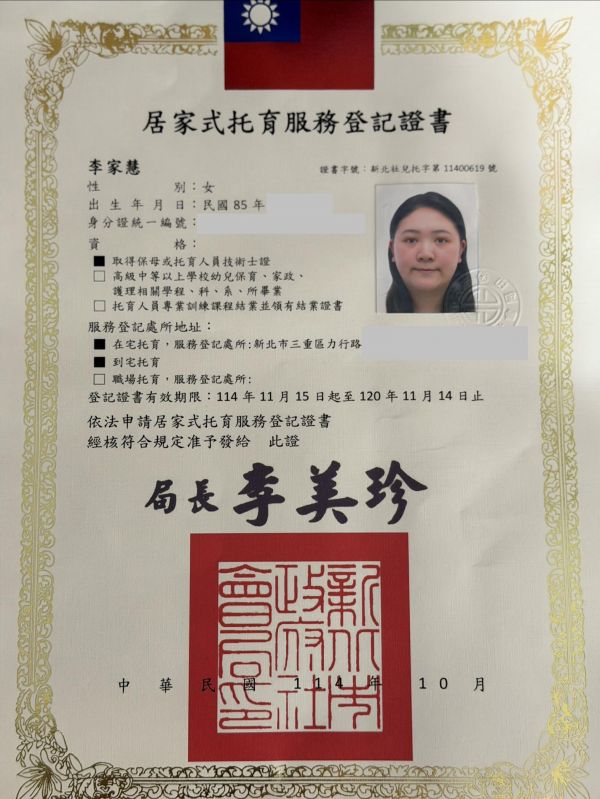 居家式托育服務登記證書
李家慧
證書字號：新北社兒托字第 11400619 號
性別：女
出生年月日：民國 85 年
身分證統一編號：
資格：
■ 取得保母或托育人員技術士證
□ 高級中等以上學校幼兒保育、家政、
護理相關學程、科、系、所畢業
□ 托育人員專業訓練課程結業並領有結業證書
服務登記處所地址：
■ 在宅托育，服務登記處所:新北市三重區力行路
■ 到宅托育
□ 職場托育，服務登記處所:
登記證書有效期限：114 年 11 月 15 日起至 120 年 11 月 14 日止
依法申請居家式托育服務登記證書
經核符合規定准予發給 此證
局長 李美珍
新北市政府社會局印
中華民國 114 年 10 月